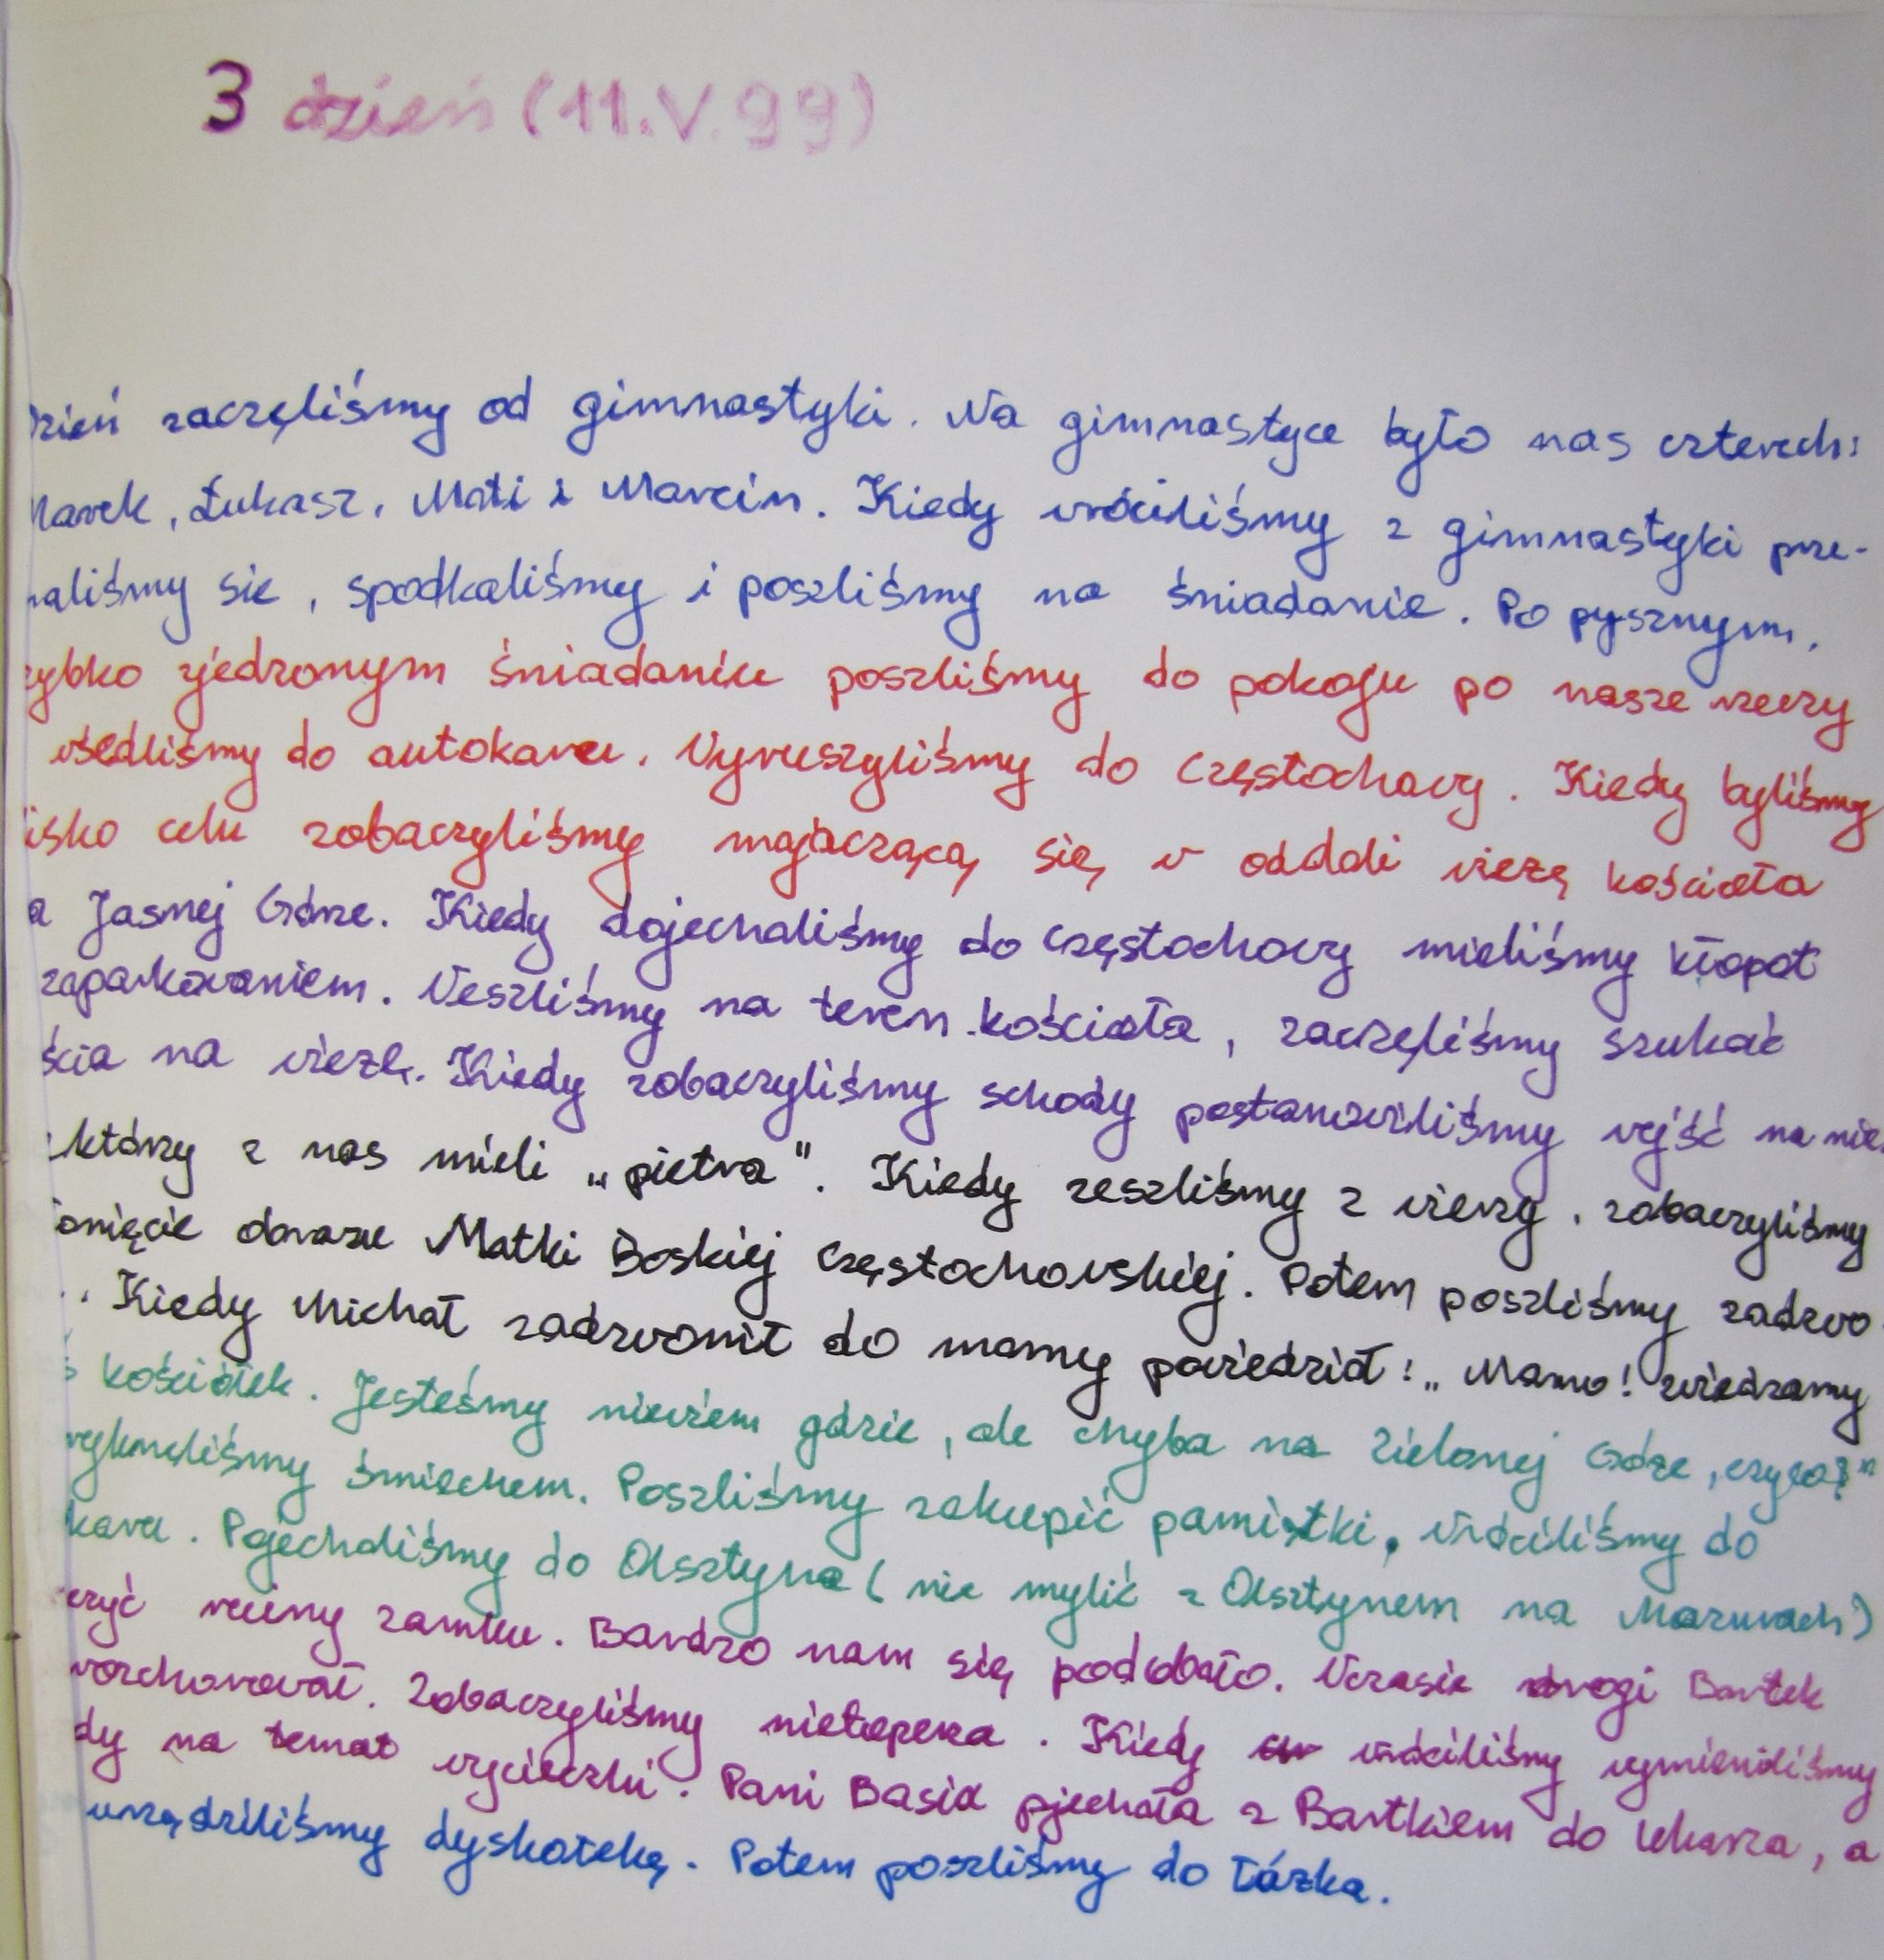 3 dzień (11.V.99)
Dzień zaczęliśmy od gimnastyki. Na gimnastyce było nas czterech:
Marek, Łukasz, Mati i Marcin. Kiedy wróciliśmy z gimnastyki prze-
naliśmy sie, spodkaliśmy i poszliśmy na śniadanie. Po pysznym,
zybko zjedzonym śniadaniu poszliśmy do pokoju po nasze rzeczy
wsedliśmy do autokaru. Wyruszyliśmy do Częstochowy. Kiedy byliśmy
isko celu zobaczyliśmy majaczącą się w oddali wieżę kościoła
a Jasnej Górze. Kiedy dojechaliśmy do Częstochowy mieliśmy kłopot
zaparkowaniem. Weszliśmy na teren kościoła, zaczęliśmy szukać
ścia na wieżę. Kiedy zobaczyliśmy schody postanowiliśmy wejść na nie.
którzy z nas mieli „pietra". Kiedy zeszliśmy z wieży, zobaczyliśmy
onięcie obrazu Matki Boskiej Częstochowskiej. Potem poszliśmy zadzwo
. Kiedy Michał zadzwonił do mamy powiedział: „Mamo! zwiedzamy
ś kościółek. Jesteśmy niewiem gdzie, ale chyba na Zielonej Górze, czyco?"
rykneliśmy śmiechem. Poszliśmy zakupić pamiątki, wróciliśmy do
karu. Pojechaliśmy do Olsztyna (nie mylić z Olsztynem na Mazurach)
czyć ruiny zamku. Bardzo nam się podobało. Wczasie drogi Bartek
rozchorował. Zobaczyliśmy nietoperza. Kiedy wróciliśmy wymieniliśmy
dy na temat wycieczki. Pani Basia pjechała z Bartkiem do lekarza, a
urządziliśmy dyskotekę. Potem poszliśmy do łóżka.